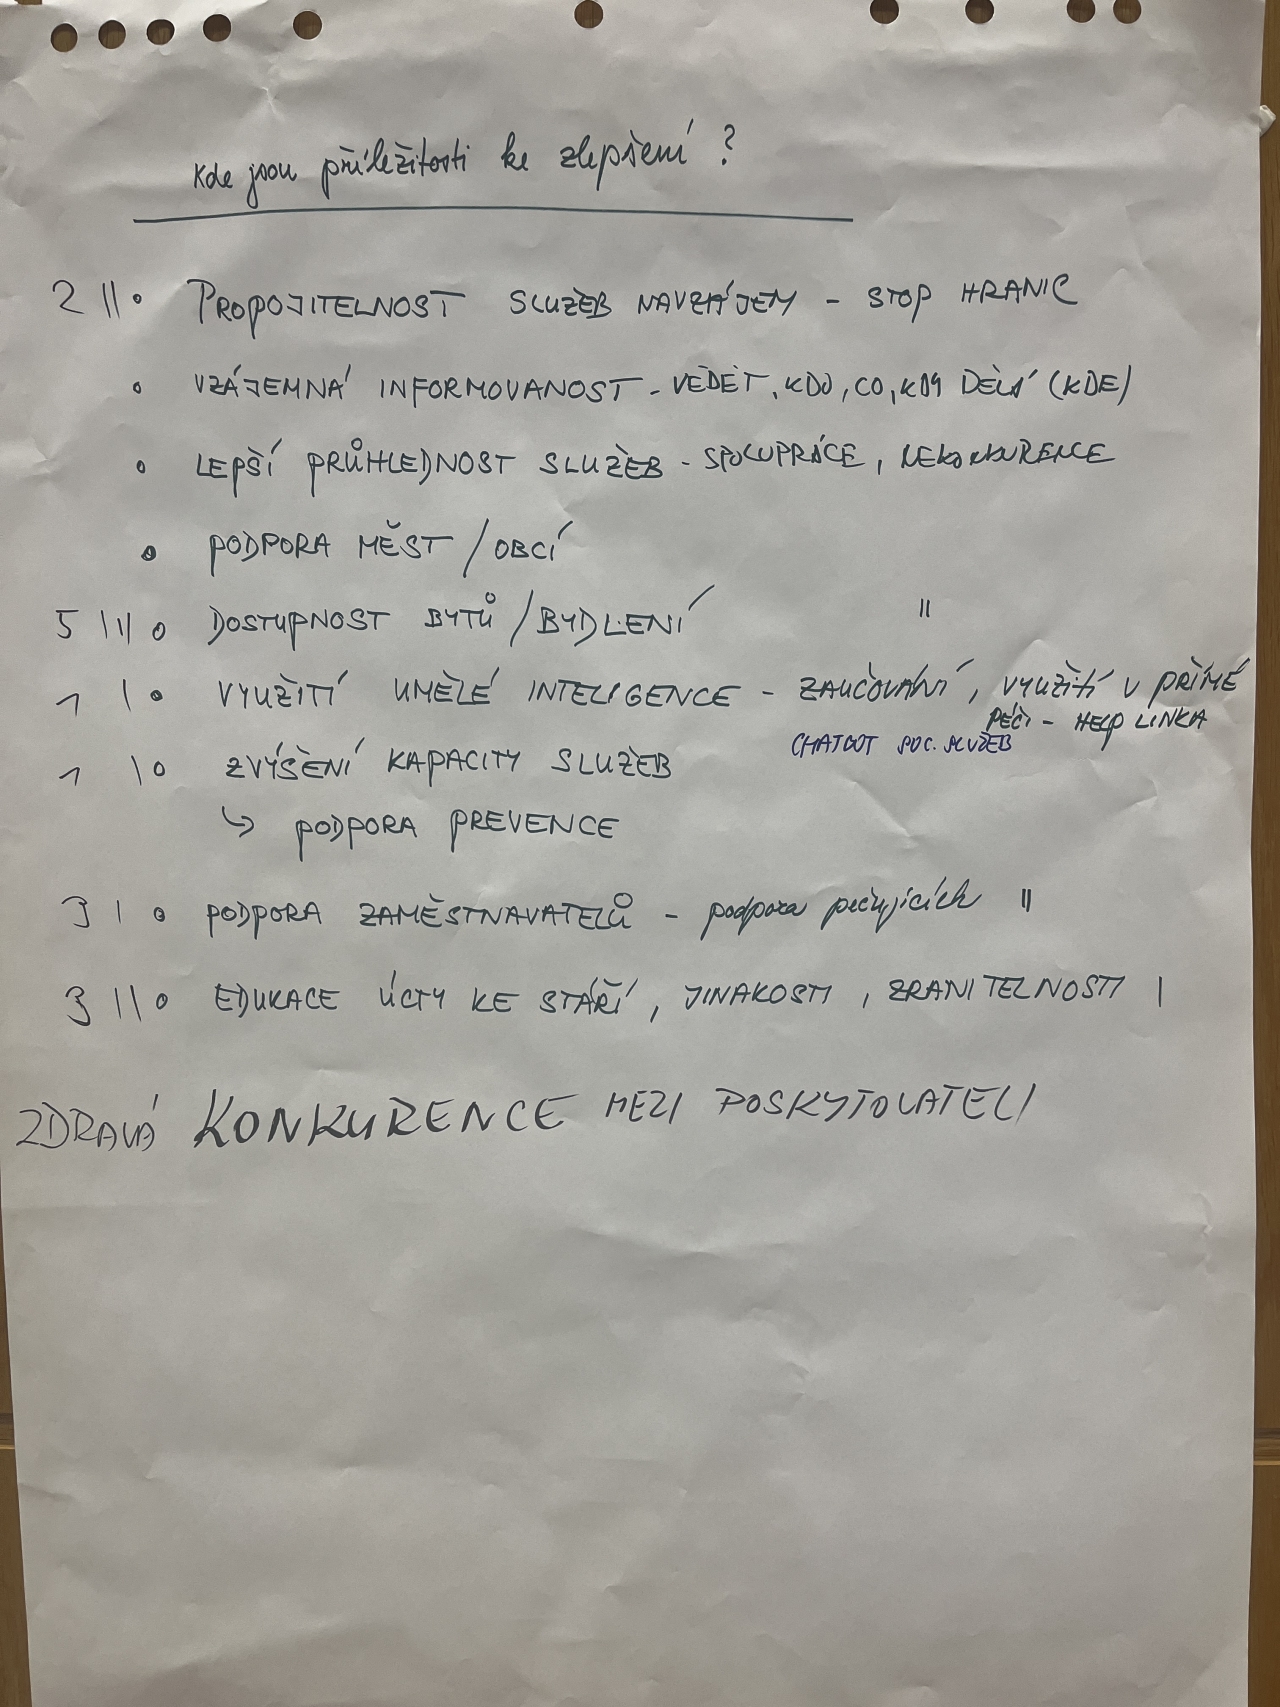 Kde jsou příležitosti ke zlepšení ?
2 || • PROPOJITELNOST SLUŽEB NAVZÁJEM - STOP HRANIC
• VZÁJEMNÁ INFORMOVANOST - VĚDĚT, KDO, CO, KDY DĚLÁ (KDE)
• LEPŠÍ PRŮHLEDNOST SLUŽEB - SPOLUPRÁCE, NEKONKURENCE
• PODPORA MĚST / OBCÍ
5 ||| • DOSTUPNOST BYTŮ / BYDLENÍ ||
1 | • VYUŽITÍ UMĚLÉ INTELIGENCE - ZAUČOVÁNÍ, VYUŽITÍ V PŘÍMÉ
PÉČI - HELP LINKA
CHATBOT SOC. SLUŽEB
1 | • ZVÝŠENÍ KAPACITY SLUŽEB
↳ PODPORA PREVENCE
3 | • PODPORA ZAMĚSTNAVATELŮ - podpora pečujících ||
3 || • EDUKACE ÚCTY KE STÁŘÍ, JINAKOSTI, ZRANITELNOSTI |
ZDRAVÁ KONKURENCE MEZI POSKYTOVATELI